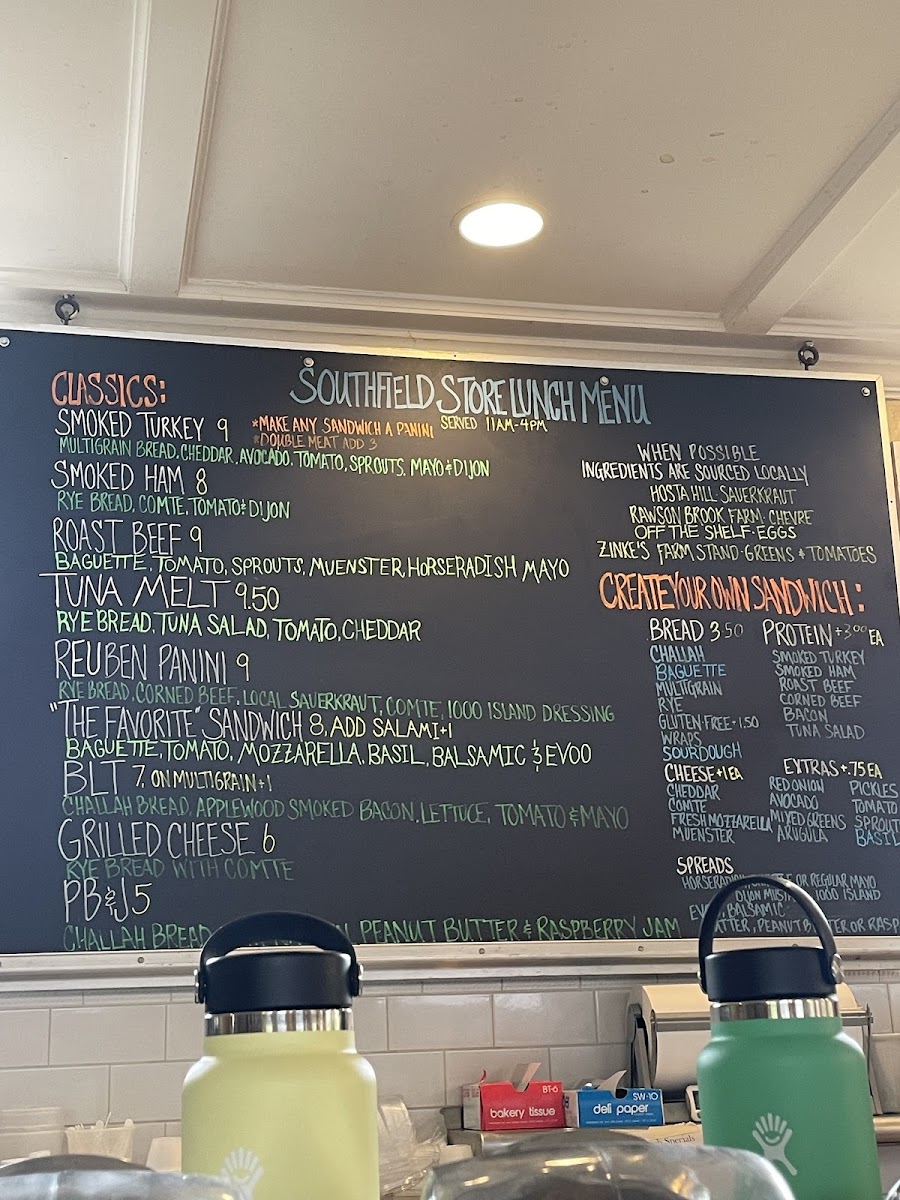 SOUTHFIELD STORE LUNCH MENU
SERVED 11AM-4PM
CLASSICS:
*MAKE ANY SANDWICH A PANINI
*DOUBLE MEAT ADD 3
SMOKED TURKEY 9
MULTIGRAIN BREAD, CHEDDAR, AVOCADO, TOMATO, SPROUTS, MAYO & DIJON
SMOKED HAM 8
RYE BREAD, COMTE, TOMATO & DIJON
ROAST BEEF 9
BAGUETTE, TOMATO, SPROUTS, MUENSTER, HORSERADISH MAYO
TUNA MELT 9.50
RYE BREAD, TUNA SALAD, TOMATO, CHEDDAR
REUBEN PANINI 9
RYE BREAD, CORNED BEEF, LOCAL SAUERKRAUT, COMTE, 1000 ISLAND DRESSING
"THE FAVORITE" SANDWICH 8, ADD SALAMI+1
BAGUETTE, TOMATO, MOZZARELLA, BASIL, BALSAMIC & EVOO
BLT 7, ON MULTIGRAIN+1
CHALLAH BREAD, APPLEWOOD SMOKED BACON, LETTUCE, TOMATO & MAYO
GRILLED CHEESE 6
RYE BREAD WITH COMTE
PB&J 5
CHALLAH BREAD PEANUT BUTTER & RASPBERRY JAM
WHEN POSSIBLE
INGREDIENTS ARE SOURCED LOCALLY
HOSTA HILL SAUERKRAUT
RAWSON BROOK FARM-CHEVRE
OFF THE SHELF-EGGS
ZINKE'S FARM STAND-GREENS + TOMATOES
CREATE YOUR OWN SANDWICH:
BREAD 3.50
CHALLAH
BAGUETTE
MULTIGRAIN
RYE
GLUTEN-FREE+1.50
WRAPS
SOURDOUGH
PROTEIN +3.00 EA
SMOKED TURKEY
SMOKED HAM
ROAST BEEF
CORNED BEEF
BACON
TUNA SALAD
CHEESE +1 EA
CHEDDAR
COMTE
FRESH MOZZARELLA
MUENSTER
EXTRAS +.75 EA
RED ONION
AVOCADO
MIXED GREENS
ARUGULA
PICKLES
TOMATO
SPROUT
BASIL
SPREADS
OR REGULAR MAYO
DIJON 1000 ISLAND
BALSAMIC
PEANUT OR RASP
BT-6
bakery tissue
SW-10
deli paper